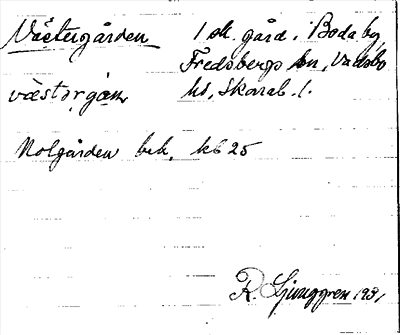 Västergården 1 sk. gård i Boda by,
Fredsbergs sn, Vadsbo
västərgɑn hd, Skarab. l.
Nolgården bek. kb 25
R. Ljunggren 1931